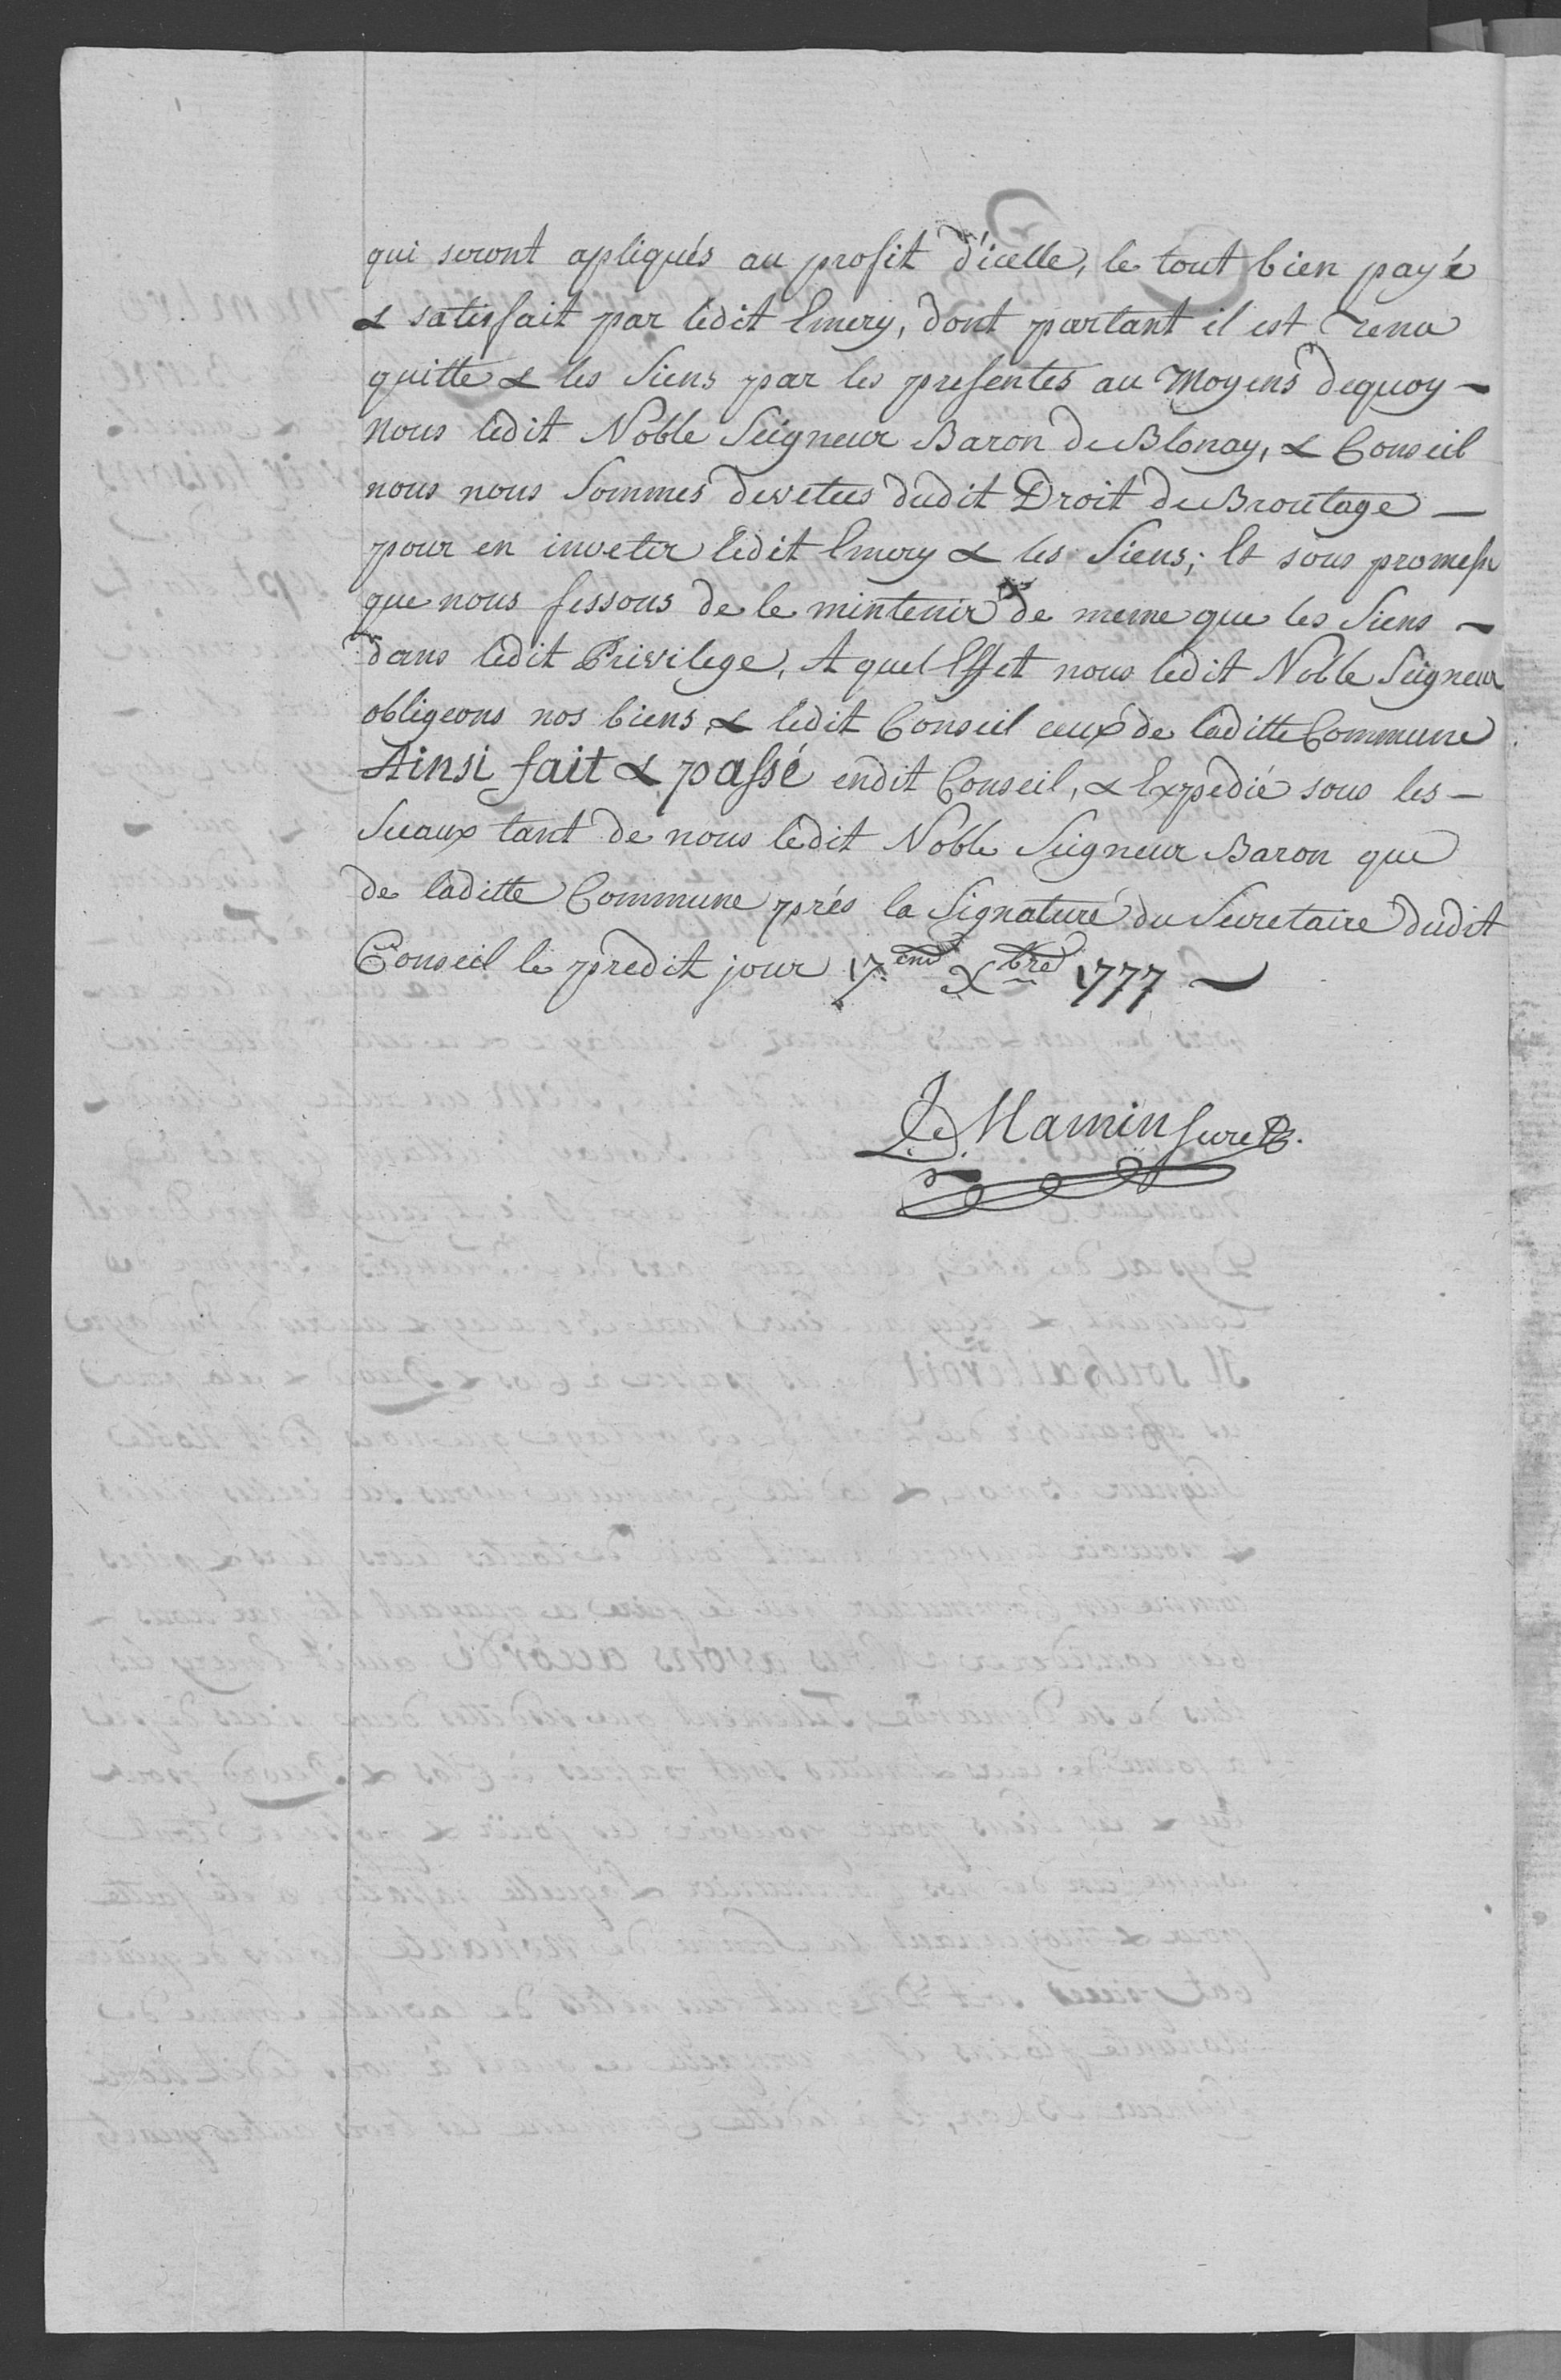 qui seront apliqués au profit d'icelle, le tout bien payé
& satisfait par ledit Emery, dont partant il est tenu
quitte & les Siens par les presentes au Moyens dequoy –
nous ledit Noble Seigneur Baron de Blonay, & Conseil
nous nous Sommes devetus dudit Droit de Broutage –
pour en inveter ledit Emery & les Siens; Et sous promesse
que nous fessons de le mintenir de meme que les Siens –
dans ledit Privilege, A quel Effet nous ledit Noble Seigneur
obligeons nos biens & ledit Conseil ceux de laditte Commune
Ainsi fait & passé endit Conseil, & Expedié sous les –
Sceaux tant de nous ledit Noble Seigneur Baron que
de laditte Commune prés la Signature du Secretaire dudit
Conseil le predit jour 17.eme Xbre 1777 –
Mamin Secre